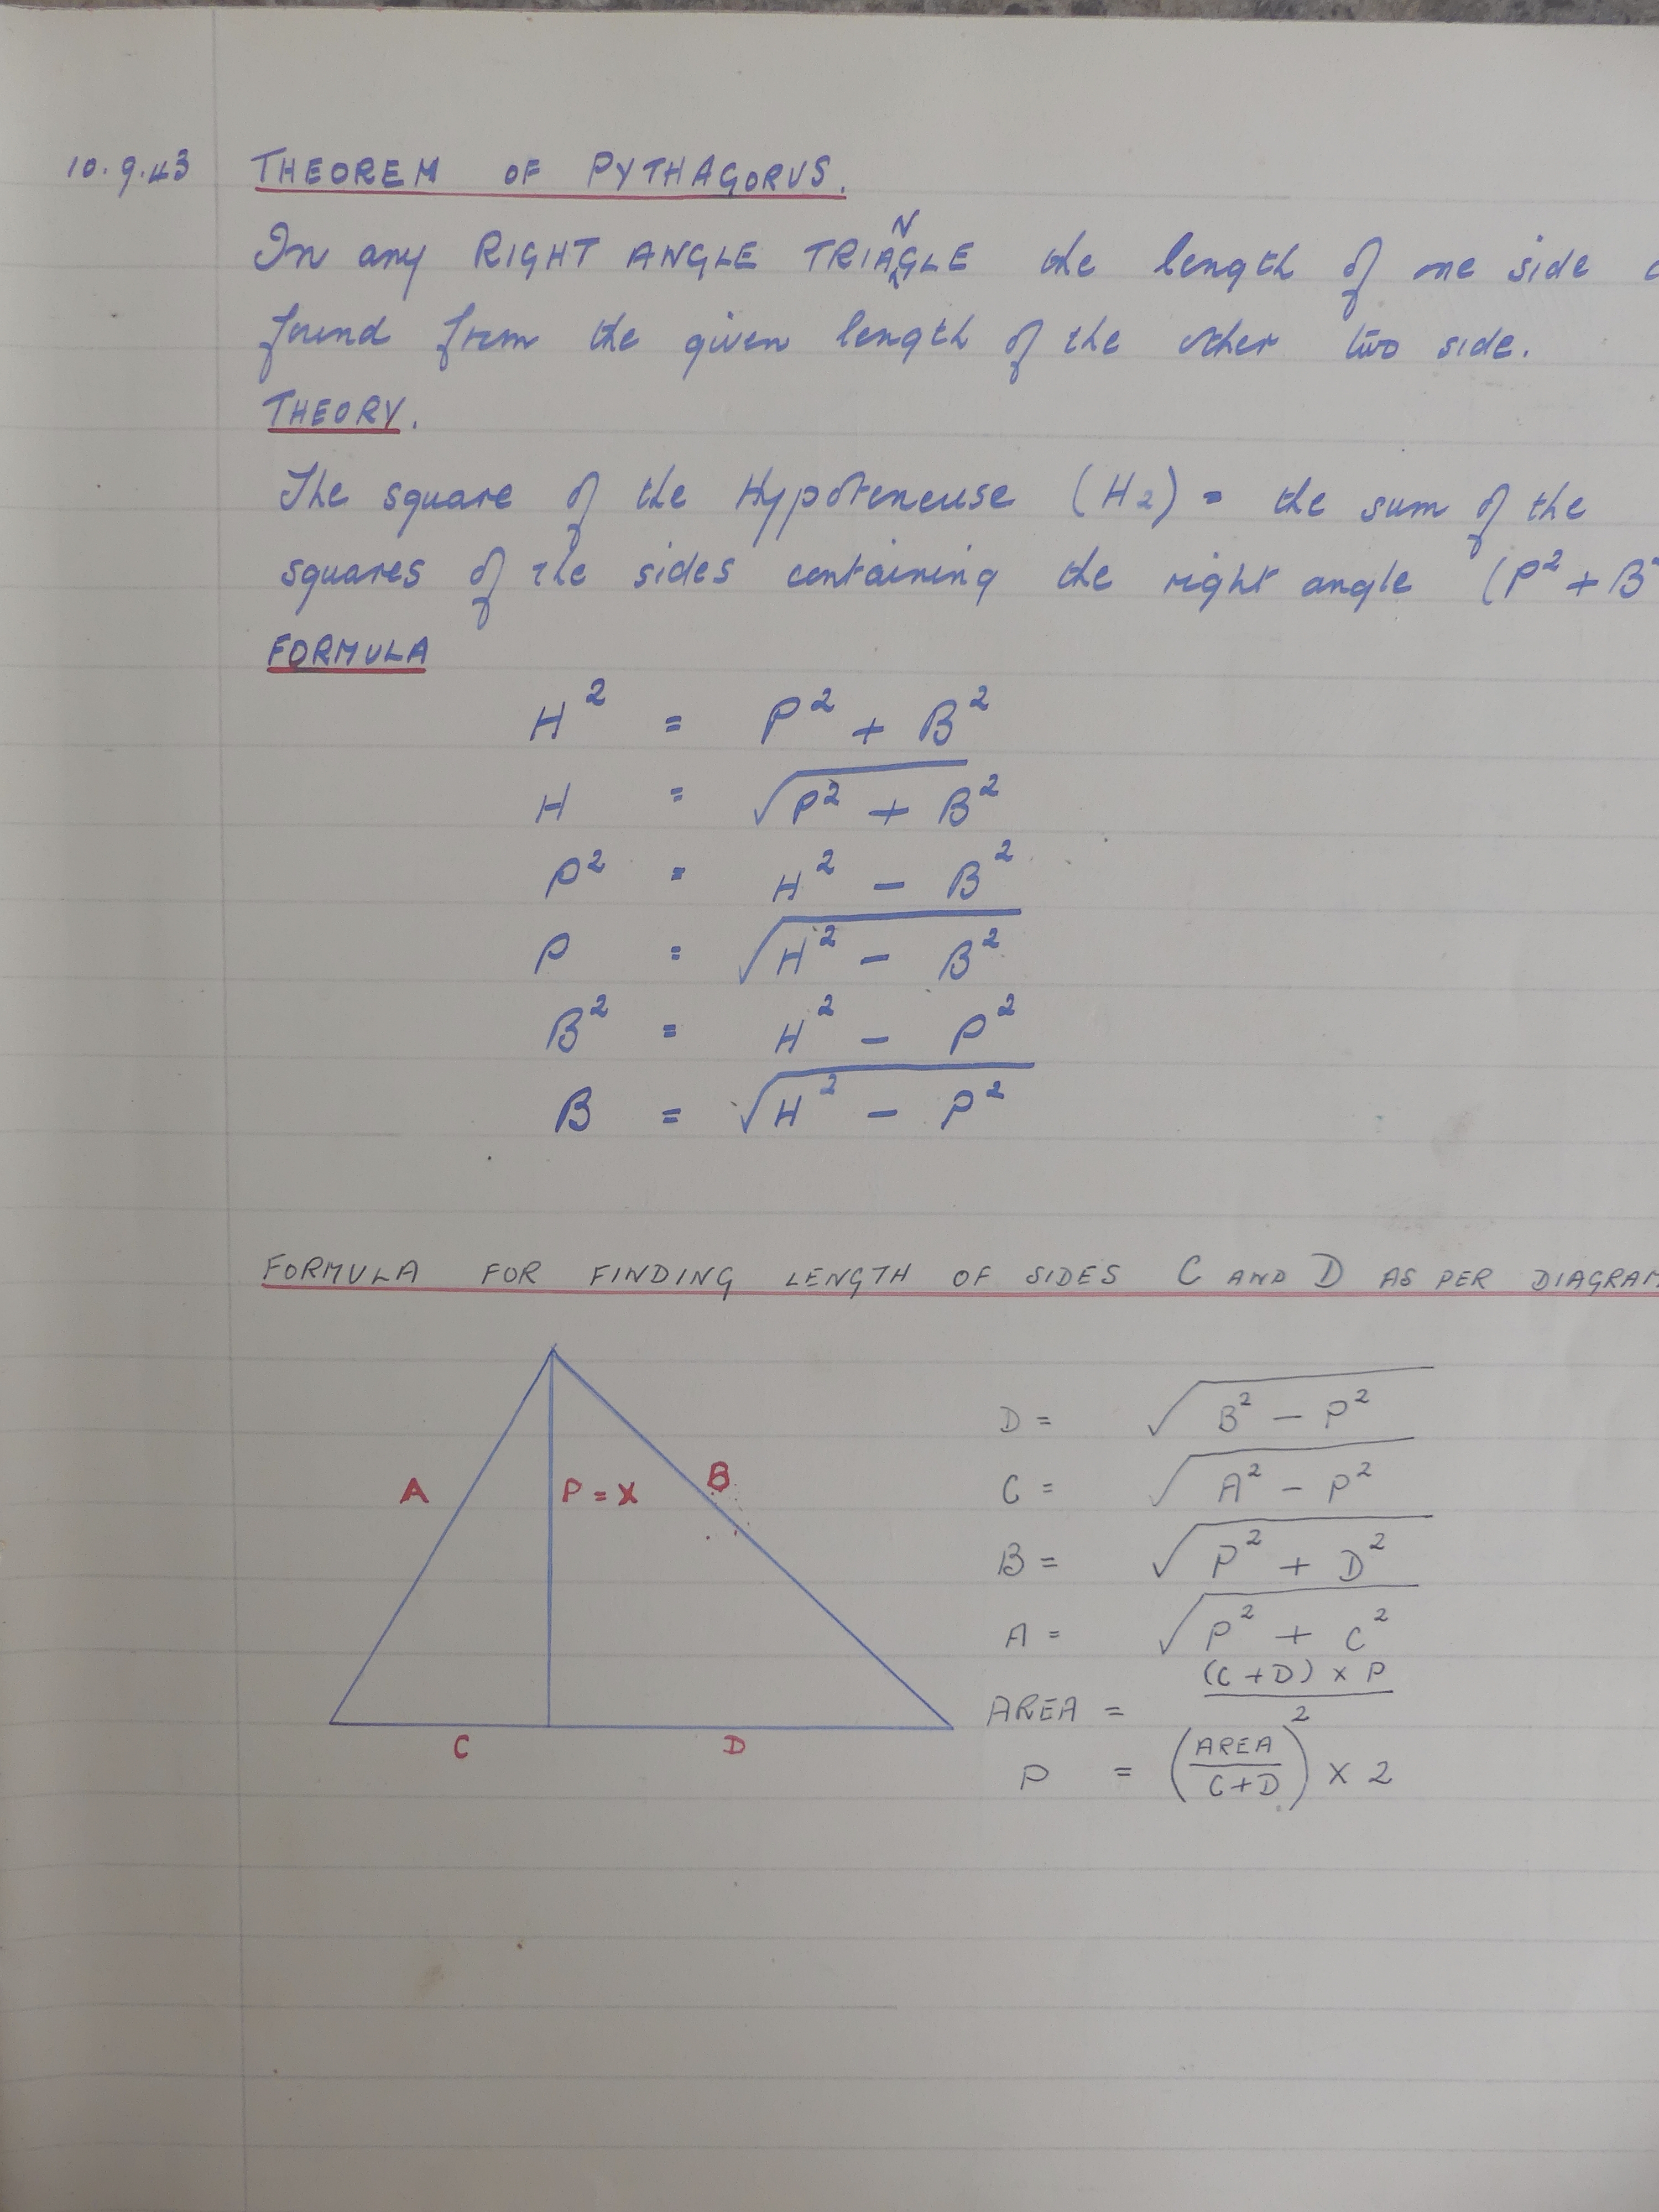 10.9.43 THEOREM OF PYTHAGORUS.
In any RIGHT ANGLE TRIANGLE the length of one side
found from the given length of the other two side.
THEORY.
The square of the Hypoteneuse (H2) = the sum of the
squares of the sides containing the right angle (P² + B²
FORMULA
H² = P² + B²
H = √P² + B²
P² = H² − B²
P = √H² − B²
B² = H² − P²
B = √H² − P²
FORMULA FOR FINDING LENGTH OF SIDES C AND D AS PER DIAGRAM
D = √B² − P²
C = √A² − P²
A P = X B
B = √P² + D²
A = √P² + C²
AREA = (C + D) × P / 2
C D
P = (AREA / C + D) × 2